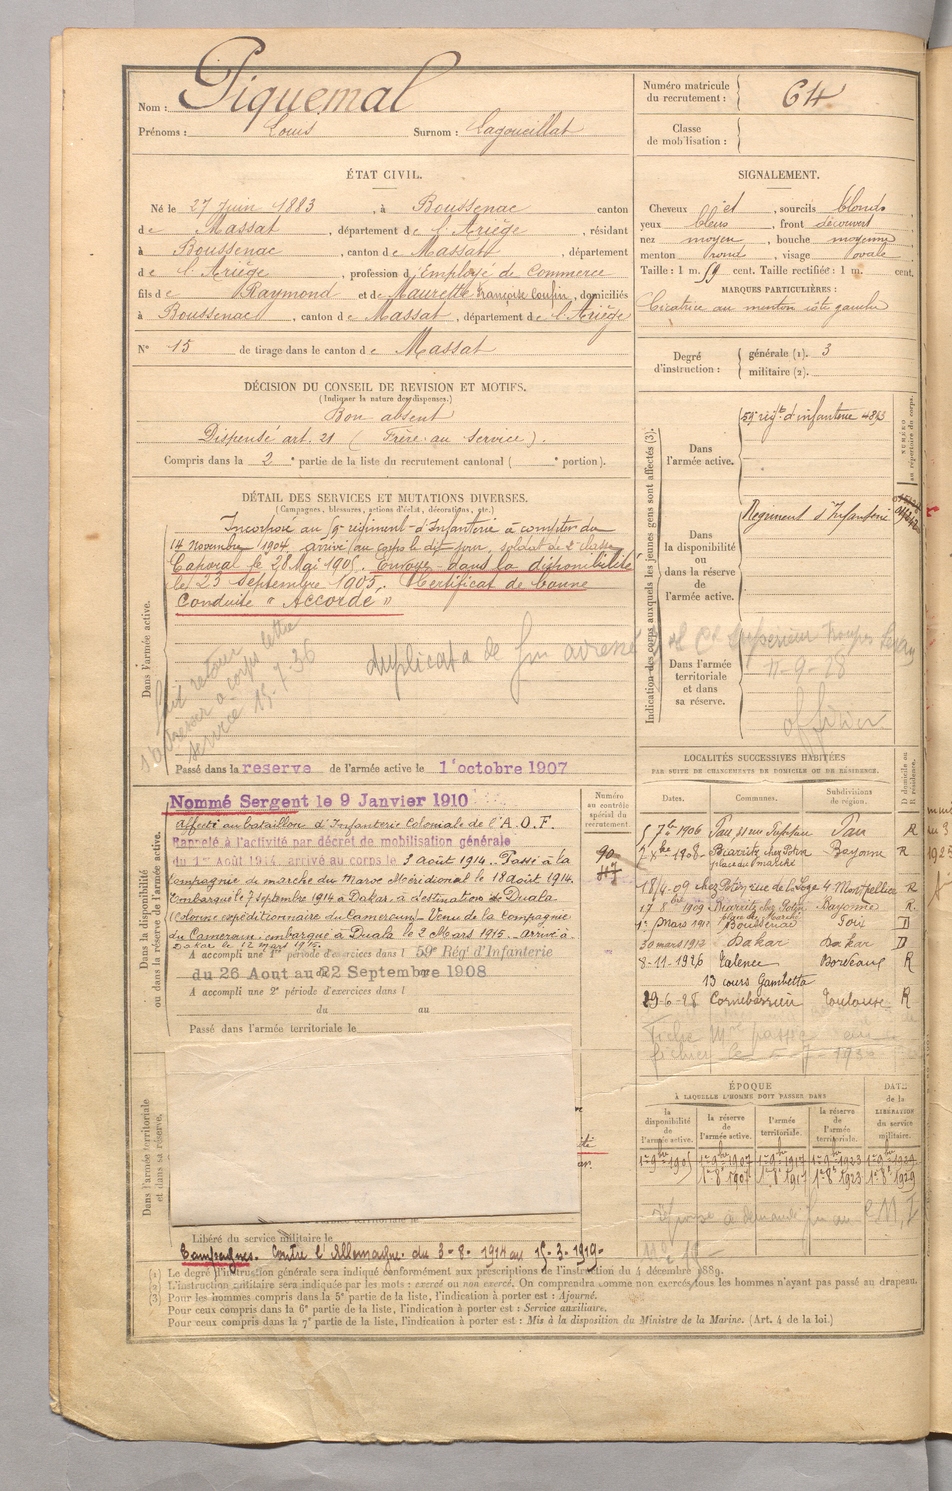 Nom : Piquemal
Prénoms : Louis Surnom : Lagoueillat
ÉTAT CIVIL.
Né le 27 Juin 1883, à Boussenac canton
de Massat, département de l'Ariège, résidant
à Boussenac, canton de Massat, département
de l'Ariège, profession d'Employé de Commerce
fils de Raymond et de Maurette Françoise, domiciliés
à Boussenac, canton de Massat, département de l'Ariège
N° 15 de tirage dans le canton de Massat
DÉCISION DU CONSEIL DE REVISION ET MOTIFS.
(Indiquer la nature des dispenses.)
Bon absent
Dispensé art. 21 (Frère au service).
Compris dans la 2e partie de la liste du recrutement cantonal ( e portion).
DÉTAIL DES SERVICES ET MUTATIONS DIVERSES.
(Campagnes, blessures, actions d'éclat, décorations, etc.)
Dans l'armée active.
Incorporé au 59e régiment d'Infanterie à compter du
14 Novembre 1904, arrivé au corps le dit jour, soldat de 2e classe
Caporal le 28 Mai 1905. Envoyé dans la disponibilité
le 23 septembre 1905. Certificat de bonne
Conduite "Accordé"
fait retour
s'adresser à corps lettre
service 15-7-36
duplicata de adressé
Passé dans la reserve de l'armée active le 1er octobre 1907
Dans la disponibilité
ou dans la réserve de l'armée active.
Nommé Sergent le 9 Janvier 1910
Affecté au bataillon d'Infanterie Coloniale de l'A.O.F.
Rappelé à l'activité par décret de mobilisation générale
du 1er Août 1914, arrivé au corps le 3 août 1914. Passé à la
Compagnie de marche du Maroc Méridional le 18 août 1914.
Embarqué le 7 septembre 1914 à Dakar, à destination de Duala.
(Colonne expéditionnaire du Cameroun – Venu de la Compagnie
du Cameroun, embarqué à Duala le 2 Mars 1915. Arrivé à
Dakar le 12 mars 1915.
A accompli une 1re période d'exercices dans l 59e Rég d'Infanterie
du 26 Aout au 22 Septembre 1908
A accompli une 2e période d'exercices dans l
du au
Passé dans l'armée territoriale le
Dans l'armée territoriale
et dans sa réserve.
Libéré du service militaire le
Campagnes. Contre l'Allemagne. du 3-8-1914 au 15-3-1919-
Le degré d'instruction générale sera indiqué conformément aux prescriptions de l'instruction du 4 décembre 1889.
L'instruction militaire sera indiquée par les mots : exercé ou non exercé. On comprendra comme non exercés tous les hommes n'ayant pas passé au drapeau.
Pour les hommes compris dans la 5e partie de la liste, l'indication à porter est : Ajourné.
Pour ceux compris dans la 6e partie de la liste, l'indication à porter est : Service auxiliaire.
Pour ceux compris dans la 7e partie de la liste, l'indication à porter est : Mis à la disposition du Ministre de la Marine. (Art. 4 de la loi.)
Numéro matricule
du recrutement : 614
Classe
de mobilisation :
SIGNALEMENT.
Cheveux et, sourcils blonds
yeux bleus, front découvert
nez moyen, bouche moyenne
menton rond, visage ovale
Taille : 1 m. 59 cent. Taille rectifiée : 1 m. cent.
MARQUES PARTICULIÈRES :
Cicatrice au menton côté gauche
Degré
d'instruction :
générale (1). 3
militaire (2).
Indication des corps auxquels les jeunes gens sont affectés (3).
NUMÉRO
au répertoire du corps.
Dans
l'armée active.
59e régt d'infanterie 4813
Dans
la disponibilité
ou
dans la réserve
de
l'armée active.
Régiment d'Infanterie
Dans l'armée
territoriale
et dans
sa réserve.
Supérieur Troupes
11-9-28
officier
Numéro
au contrôle
spécial du
recrutement.
LOCALITÉS SUCCESSIVES HABITÉES
PAR SUITE DE CHANGEMENTS DE DOMICILE OU DE RÉSIDENCE.
Dates. Communes. Subdivisions de région. D domicile ou R résidence.
5 7bre 1906 Pau, Pau R
2 Xbre 1908 Biarritz chez Potin place du marché Bayonne R
18/4-09 chez Potin rue de la Loge 4 Montpellier R
17 8bre 1909 Biarritz chez Potin place du Marché Bayonne R.
1er Mars 1911 Boussenac Foix D
30 mars 1912 Dakar Dakar D
8-11-1926 Talence Bordeaux R
13 cours Gambetta
29-6-28 Cornebarrieu Toulouse R
Fiche passée au
fichier le
ÉPOQUE
À LAQUELLE L'HOMME DOIT PASSER DANS
DATE
de la
LIBÉRATION
du service
militaire.
la disponibilité de l'armée active. la réserve de l'armée active. l'armée territoriale. la réserve de l'armée territoriale.
1er 9bre 1905 1er 9bre 1907 1er 9bre 1917 1er 9bre 1923 1er 9bre 1929
1er 8e 1907 1er 8e 1917 1er 8e 1923 1er 8e 1929